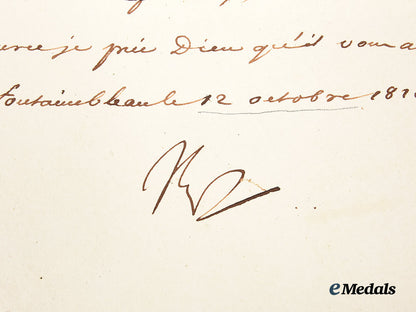 je prie Dieu qu'il vous a
Fontainebleau le 12 octobre 181
eMedals